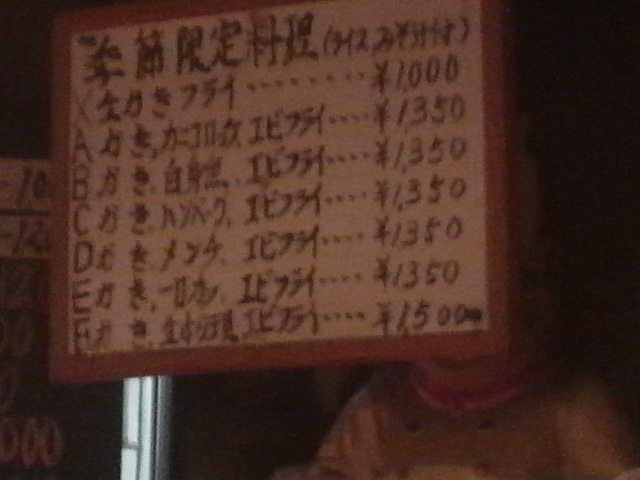 季節限定料理(ライス みそ汁付)
X 生かきフライ ········ ¥1,000
A かき,カニコロッケ,エビフライ····¥1,350
B かき,白身魚,エビフライ····¥1,350
C かき,ハンバーグ,エビフライ····¥1,350
D かき,メンチ,エビフライ····¥1,350
E かき,一口カツ,エビフライ····¥1350
F かき,生 エビフライ····¥1,500
000